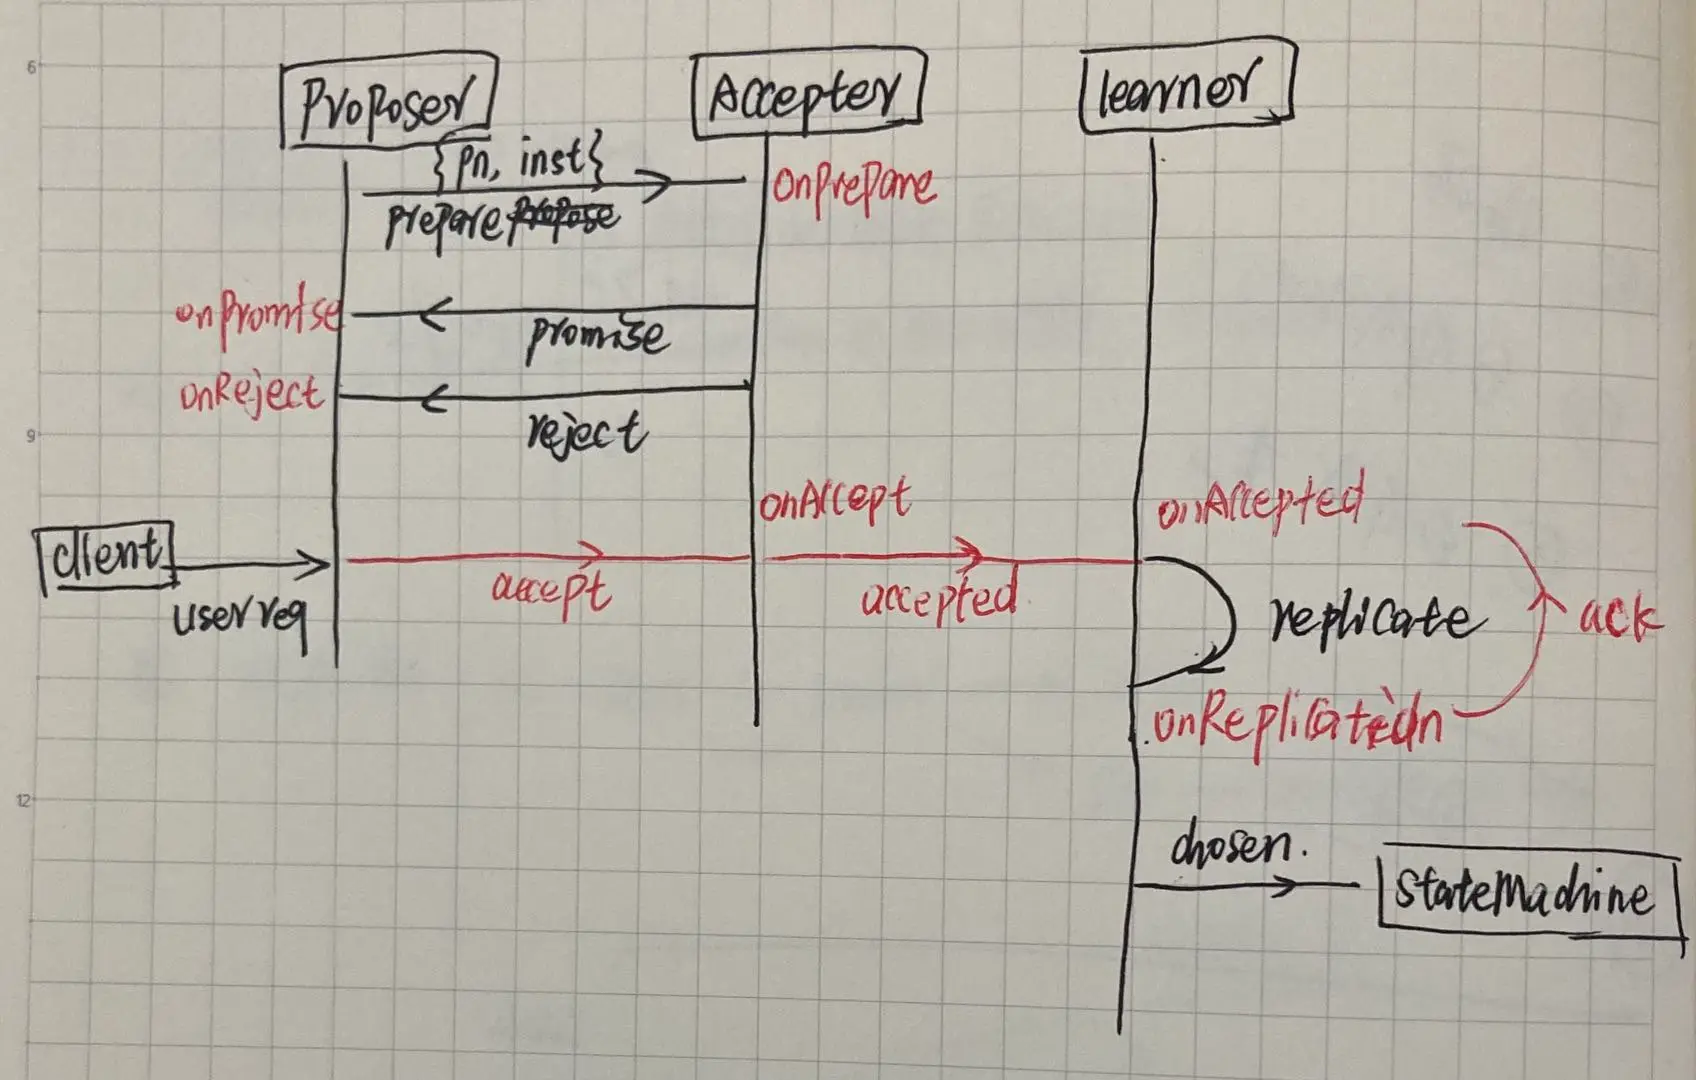 6
Proposer
Accepter
learner
{pn, inst}
onPrepare
prepare propose
onPromise
promise
onReject
reject
9
onAccept
onAccepted
client
accept
accepted
replicate
ack
user req
onReplication
12
chosen.
StateMachine